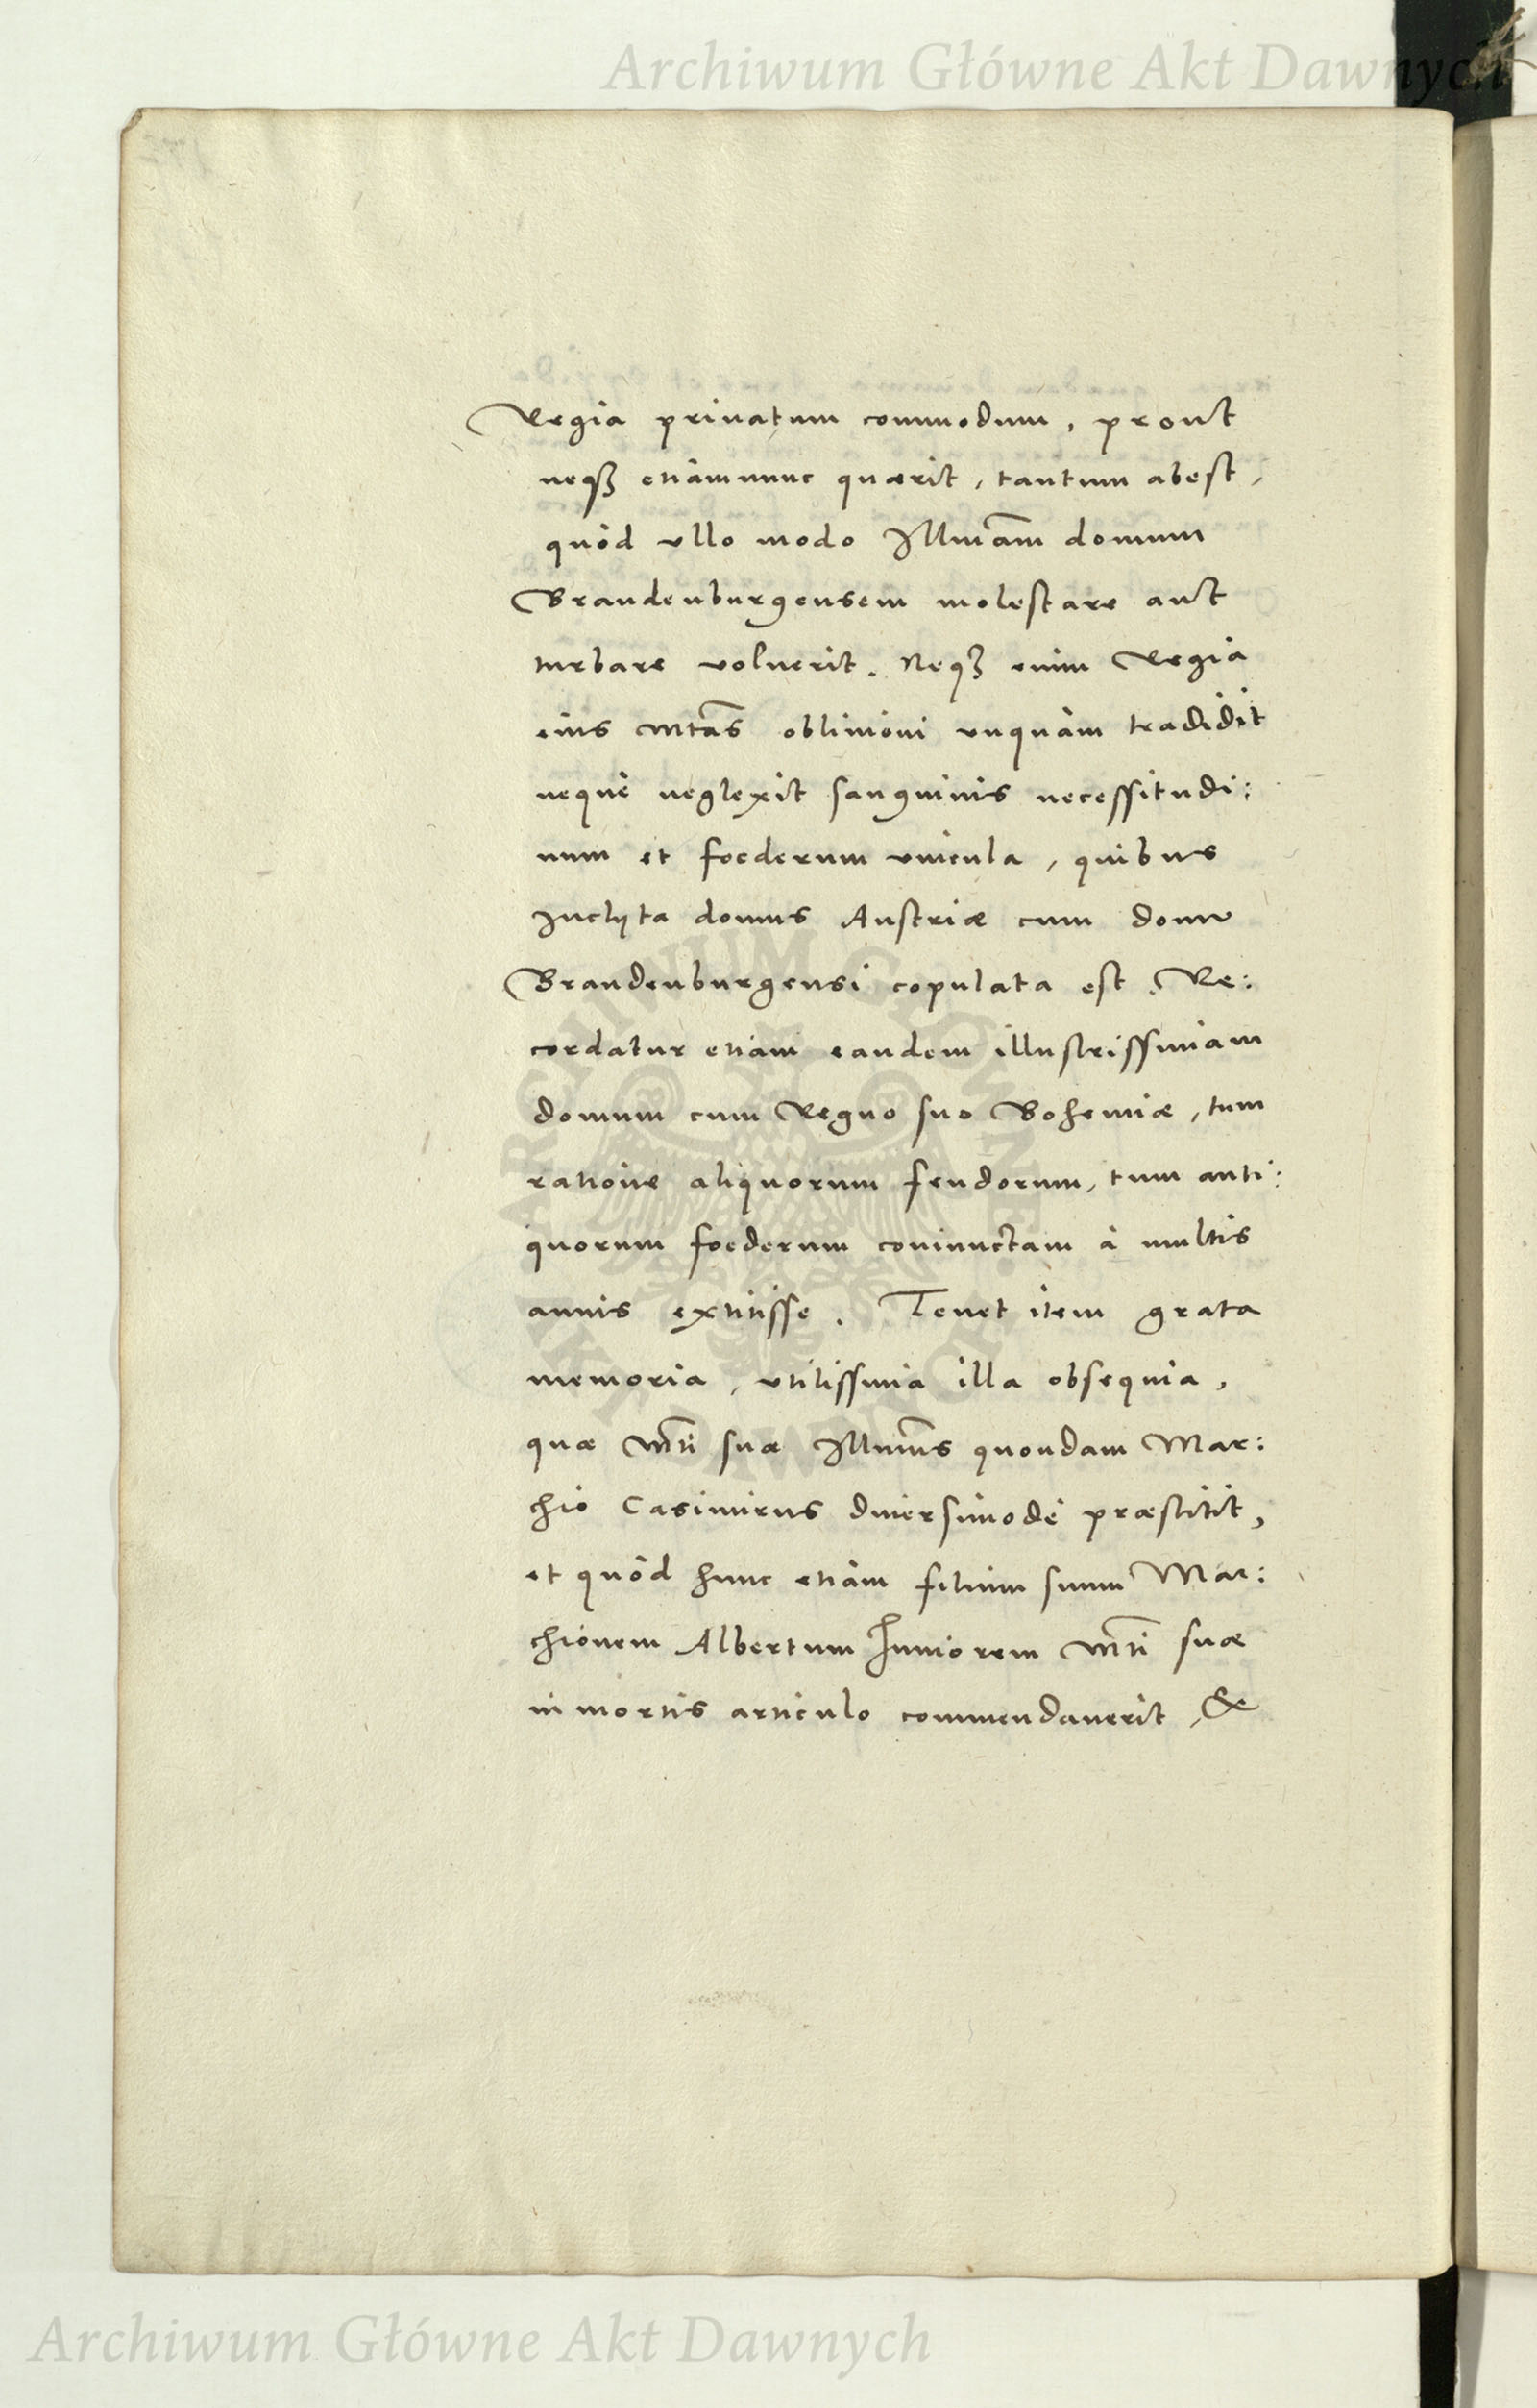 Archiwum Główne Akt Dawnych
Regia priuatum commodum, prout
neqȝ etiamnunc quærit, tantum abest,
quòd vllo modo Illmam domum
Brandenburgensem molestare aut
turbare voluerit. Neqȝ enim Regia
eius Mtas obliuioni vnquàm tradidit
nequè neglexit sanguinis necessitudi:
num et foederum vincula, quibus
Inclyta domus Austriæ cum domo
Brandenburgensi copulata est. Re:
cordatur etiam eandem illustrissimam
domum cum Regno suo Bohemiæ, tum
ratione aliquorum feudorum, tum anti:
quorum foederum coniunctam à multis
annis extitisse. Tenet item grata
memoria, vtilissima illa obsequia,
quæ Mti suæ Illmus quondam Mar:
chio Casimirus diuersimodè præstitit,
et quòd hunc etiàm filium suum Mar:
chionem Albertum Iuniorem Mti suæ
in mortis articulo commendauerit, &
ARCHIWUM GŁÓWNE AKT DAWNYCH
Archiwum Główne Akt Dawnych